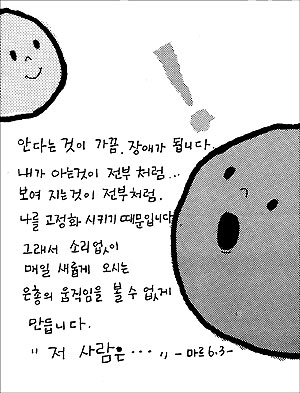 안다는 것이 가끔. 장애가 됩니다.
내가 아는것이 전부 처럼...
보여 지는것이 전부처럼.
나를 고정화 시키기 때문입니다
그래서 소리없이
매일 새롭게 오시는
은총의 움직임을 볼 수 없게
만듭니다.
"저 사람은···" -마르6.3-